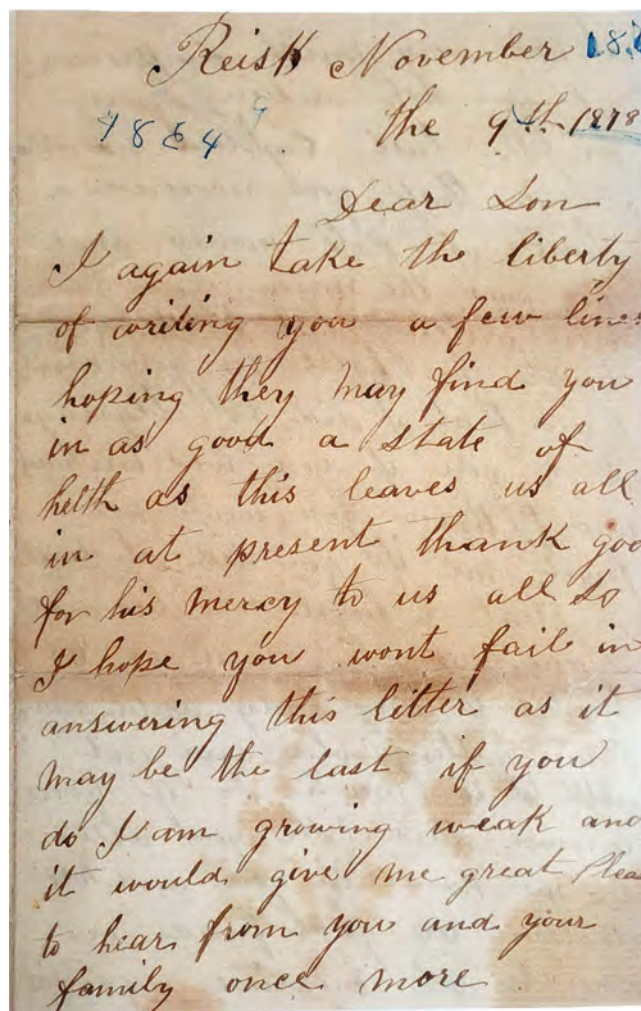 Reisk November 18
the 9th 1878
1884 9
Dear Son
I again take the liberty
of writing you a few lines
hoping they may find you
in as good a state of
helth as this leaves us all
in at present thank god
for his mercy to us all So
I hope you wont fail in
answering this litter as it
may be the last if you
do I am growing weak and
it would give me great Plea
to hear from you and your
family once more